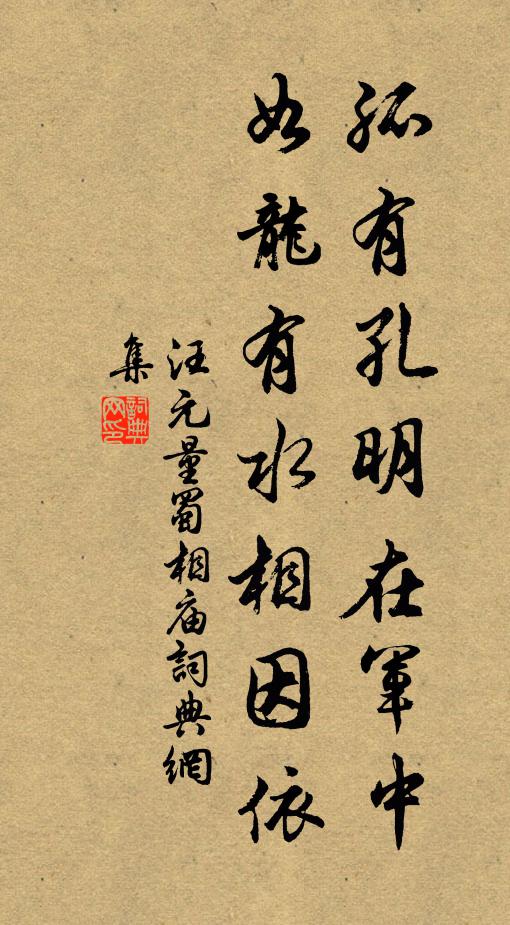 孤有孔明在軍中
如龍有水相因依
汪元量蜀相庙詞典網
集
詞典
网印